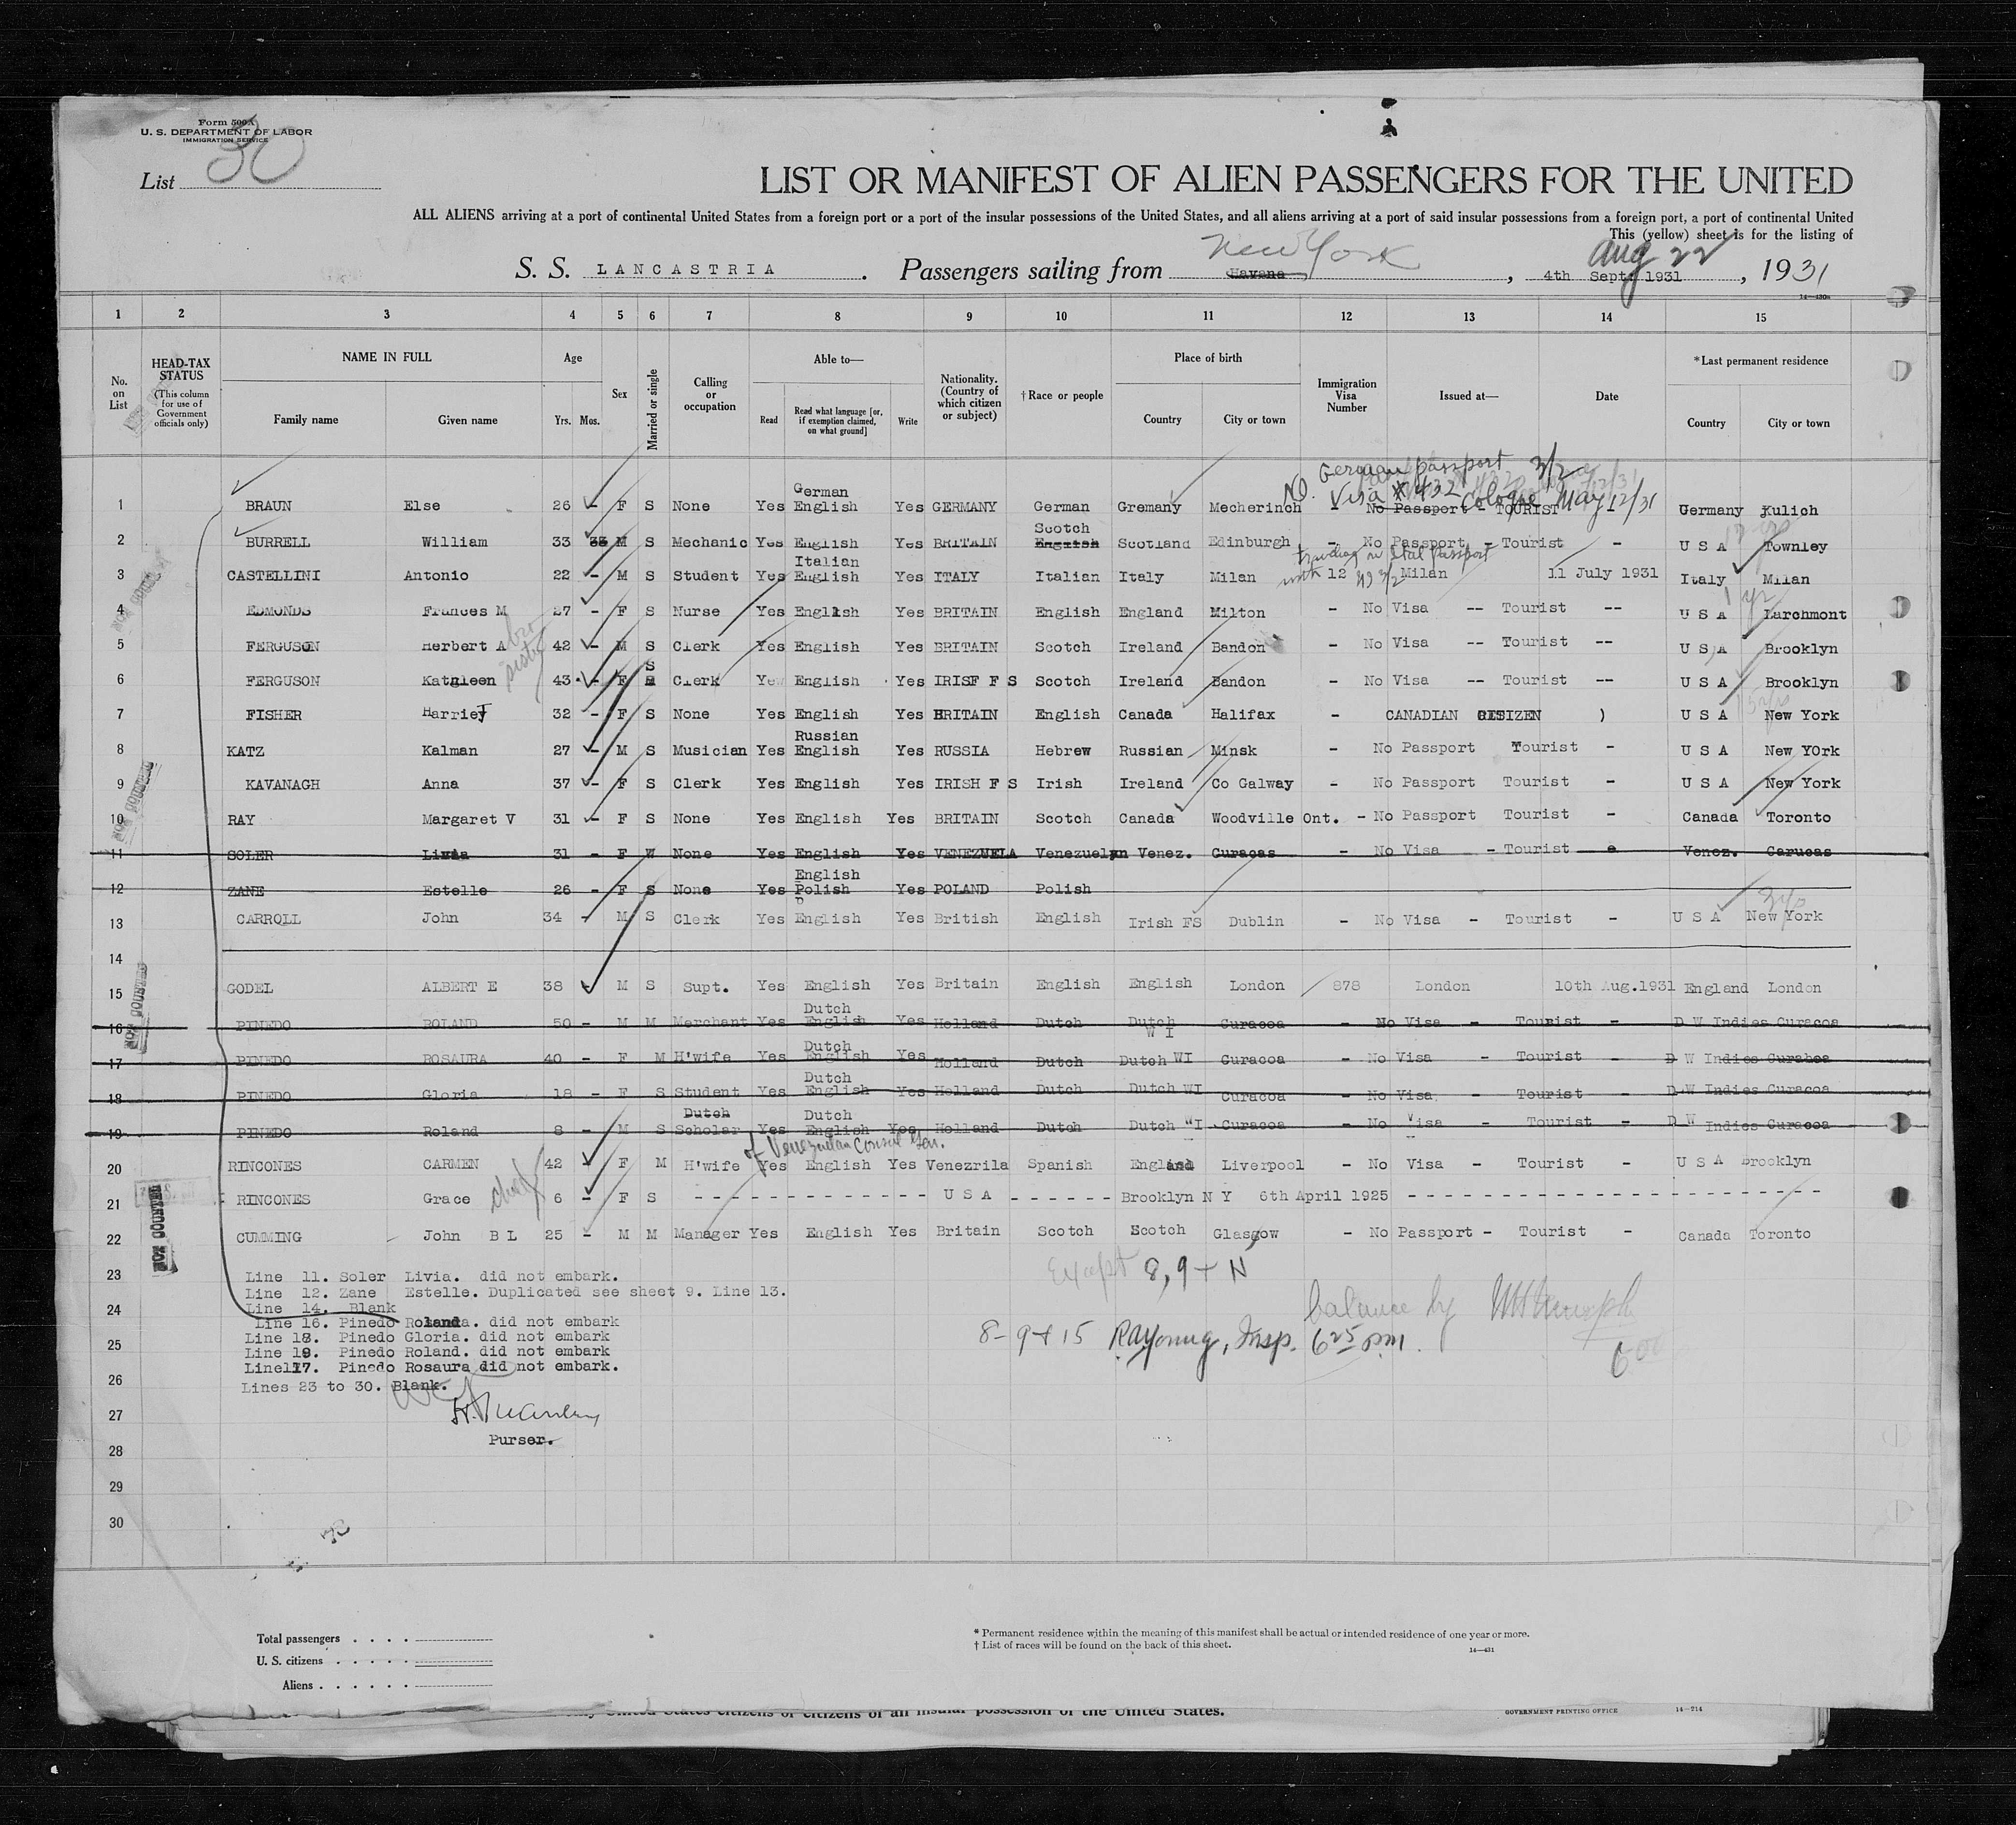 Form 500A
U. S. DEPARTMENT OF LABOR
IMMIGRATION SERVICE
List 30
LIST OR MANIFEST OF ALIEN PASSENGERS FOR THE UNITED
ALL ALIENS arriving at a port of continental United States from a foreign port or a port of the insular possessions of the United States, and all aliens arriving at a port of said insular possessions from a foreign port, a port of continental United
This (yellow) sheet is for the listing of
New York Aug 22
S. S. LANCASTRIA . Passengers sailing from Havana , 4th Sept. 1931 , 1931
14—430a
1 2 3 4 5 6 7 8 9 10 11 12 13 14 15
No. on List
HEAD-TAX STATUS
(This column for use of Government officials only)
NAME IN FULL
Family name Given name
Age
Yrs. Mos.
Sex
Married or single
Calling or occupation
Able to—
Read Read what language [or, if exemption claimed, on what ground] Write
Nationality. (Country of which citizen or subject)
† Race or people
Place of birth
Country City or town
Immigration Visa Number
Issued at—
Date
* Last permanent residence
Country City or town
German passport 3/2
Visa # 432 Cologne May 12/31
German
1 BRAUN Else 26 - F S None Yes English Yes GERMANY German Gremany Mecherinch - No Passport - TOURIST Germany Julich
Scotch
2 BURRELL William 33 33 M S Mechanic Yes English Yes BRITAIN English Scotland Edinburgh - No Passport - Tourist - U S A Townley
traveling on Ital passport
with
Italian
3 CASTELLINI Antonio 22 - M S Student Yes English Yes ITALY Italian Italy Milan 12 Milan 11 July 1931 Italy Milan
1 yr
4 EDMONDS Frances M 27 - F S Nurse Yes English Yes BRITAIN English England Milton - No Visa -- Tourist -- U S A Larchmont
bro
sister
5 FERGUSON Herbert A 42 - M S Clerk Yes English Yes BRITAIN Scotch Ireland Bandon - No Visa -- Tourist -- U S A Brooklyn
S
6 FERGUSON Kathleen 43 - F Clerk Yes English Yes IRISF F S Scotch Ireland Bandon - No Visa -- Tourist -- U S A Brooklyn
7 FISHER Harriet 32 - F S None Yes English Yes BRITAIN English Canada Halifax - CANADIAN CITIZEN ) U S A New York
Russian
8 KATZ Kalman 27 - M S Musician Yes English Yes RUSSIA Hebrew Russian Minsk - No Passport Tourist - U S A New YOrk
9 KAVANAGH Anna 37 - F S Clerk Yes English Yes IRISH F S Irish Ireland Co Galway - No Passport Tourist - U S A New York
10 RAY Margaret V 31 - F S None Yes English Yes BRITAIN Scotch Canada Woodville Ont. - No Passport Tourist - Canada Toronto
11 SOLER Livia 31 - F W None Yes English Yes VENEZUELA Venezuelan Venez. Curacas - No Visa - Tourist Venez. Carucas
English
12 ZANE Estelle 26 - F S None Yes Polish Yes POLAND Polish
13 CARROLL John 34 - M S Clerk Yes English Yes British English Irish FS Dublin - No Visa - Tourist - U S A New York
14
15 GODEL ALBERT E 38 - M S Supt. Yes English Yes Britain English English London 878 London 10th Aug.1931 England London
Dutch
16 PINEDO ROLAND 50 - M M Merchant Yes English Yes Holland Dutch Dutch W I Curacoa - No Visa - Tourist - D W Indies Curacoa
Dutch
17 PINEDO ROSAURA 40 - F M H'wife Yes English Yes Holland Dutch Dutch WI Curacoa - No Visa - Tourist - D W Indies Curahoa
Dutch
18 PINEDO Gloria 18 - F S Student Yes English Yes Holland Dutch Dutch WI Curacoa - No Visa - Tourist - D W Indies Curacoa
Dutch Dutch
19 PINEDO Roland 8 - M S Scholar Yes English Yes Holland Dutch Dutch WI Curacoa - No Visa - Tourist - D W Indies Curacoa
of Venezuelan Consul Gen.
20 RINCONES CARMEN 42 - F M H'wife Yes English Yes Venezrila Spanish England Liverpool - No Visa - Tourist - U S A Brooklyn
21 RINCONES Grace child 6 - F S - - - U S A - - - Brooklyn N Y 6th April 1925 - - -
22 CUMMING John B L 25 - M M Manager Yes English Yes Britain Scotch Scotch Glasgow - No Passport - Tourist - Canada Toronto
NON QUOTA
23 Line 11. Soler Livia. did not embark.
Line 12. Zane Estelle. Duplicated see sheet 9. Line 13.
24 Line 14. Blank
Line 16. Pinedo Rolanda. did not embark
25 Line 18. Pinedo Gloria. did not embark
Line 19. Pinedo Roland. did not embark
Line 17. Pinedo Rosaura did not embark.
26 Lines 23 to 30. Blank.
27
Purser.
28
29
30
Except 8, 9 +
balance by
8-9+15 RAYoung, Insp. 6 25 pm.
Total passengers . . . .
U. S. citizens . . . . . .
Aliens . . . . . .
* Permanent residence within the meaning of this manifest shall be actual or intended residence of one year or more.
† List of races will be found on the back of this sheet.
14—431
United States citizens or citizens of an insular possession of the United States.
GOVERNMENT PRINTING OFFICE 14—714